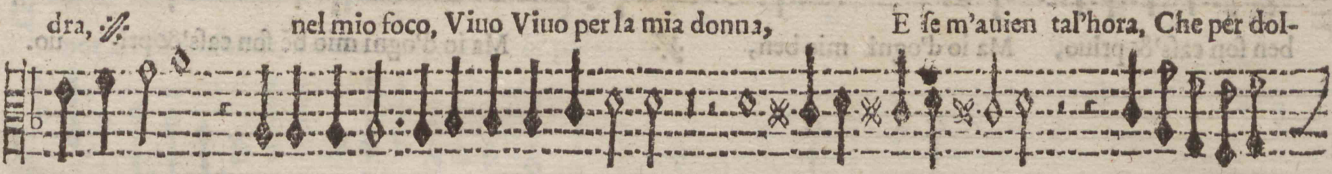 dra, ://: nel mio foco, Viuo Viuo per la mia donna, E ſe m'auien tal'hora, Che per dol-